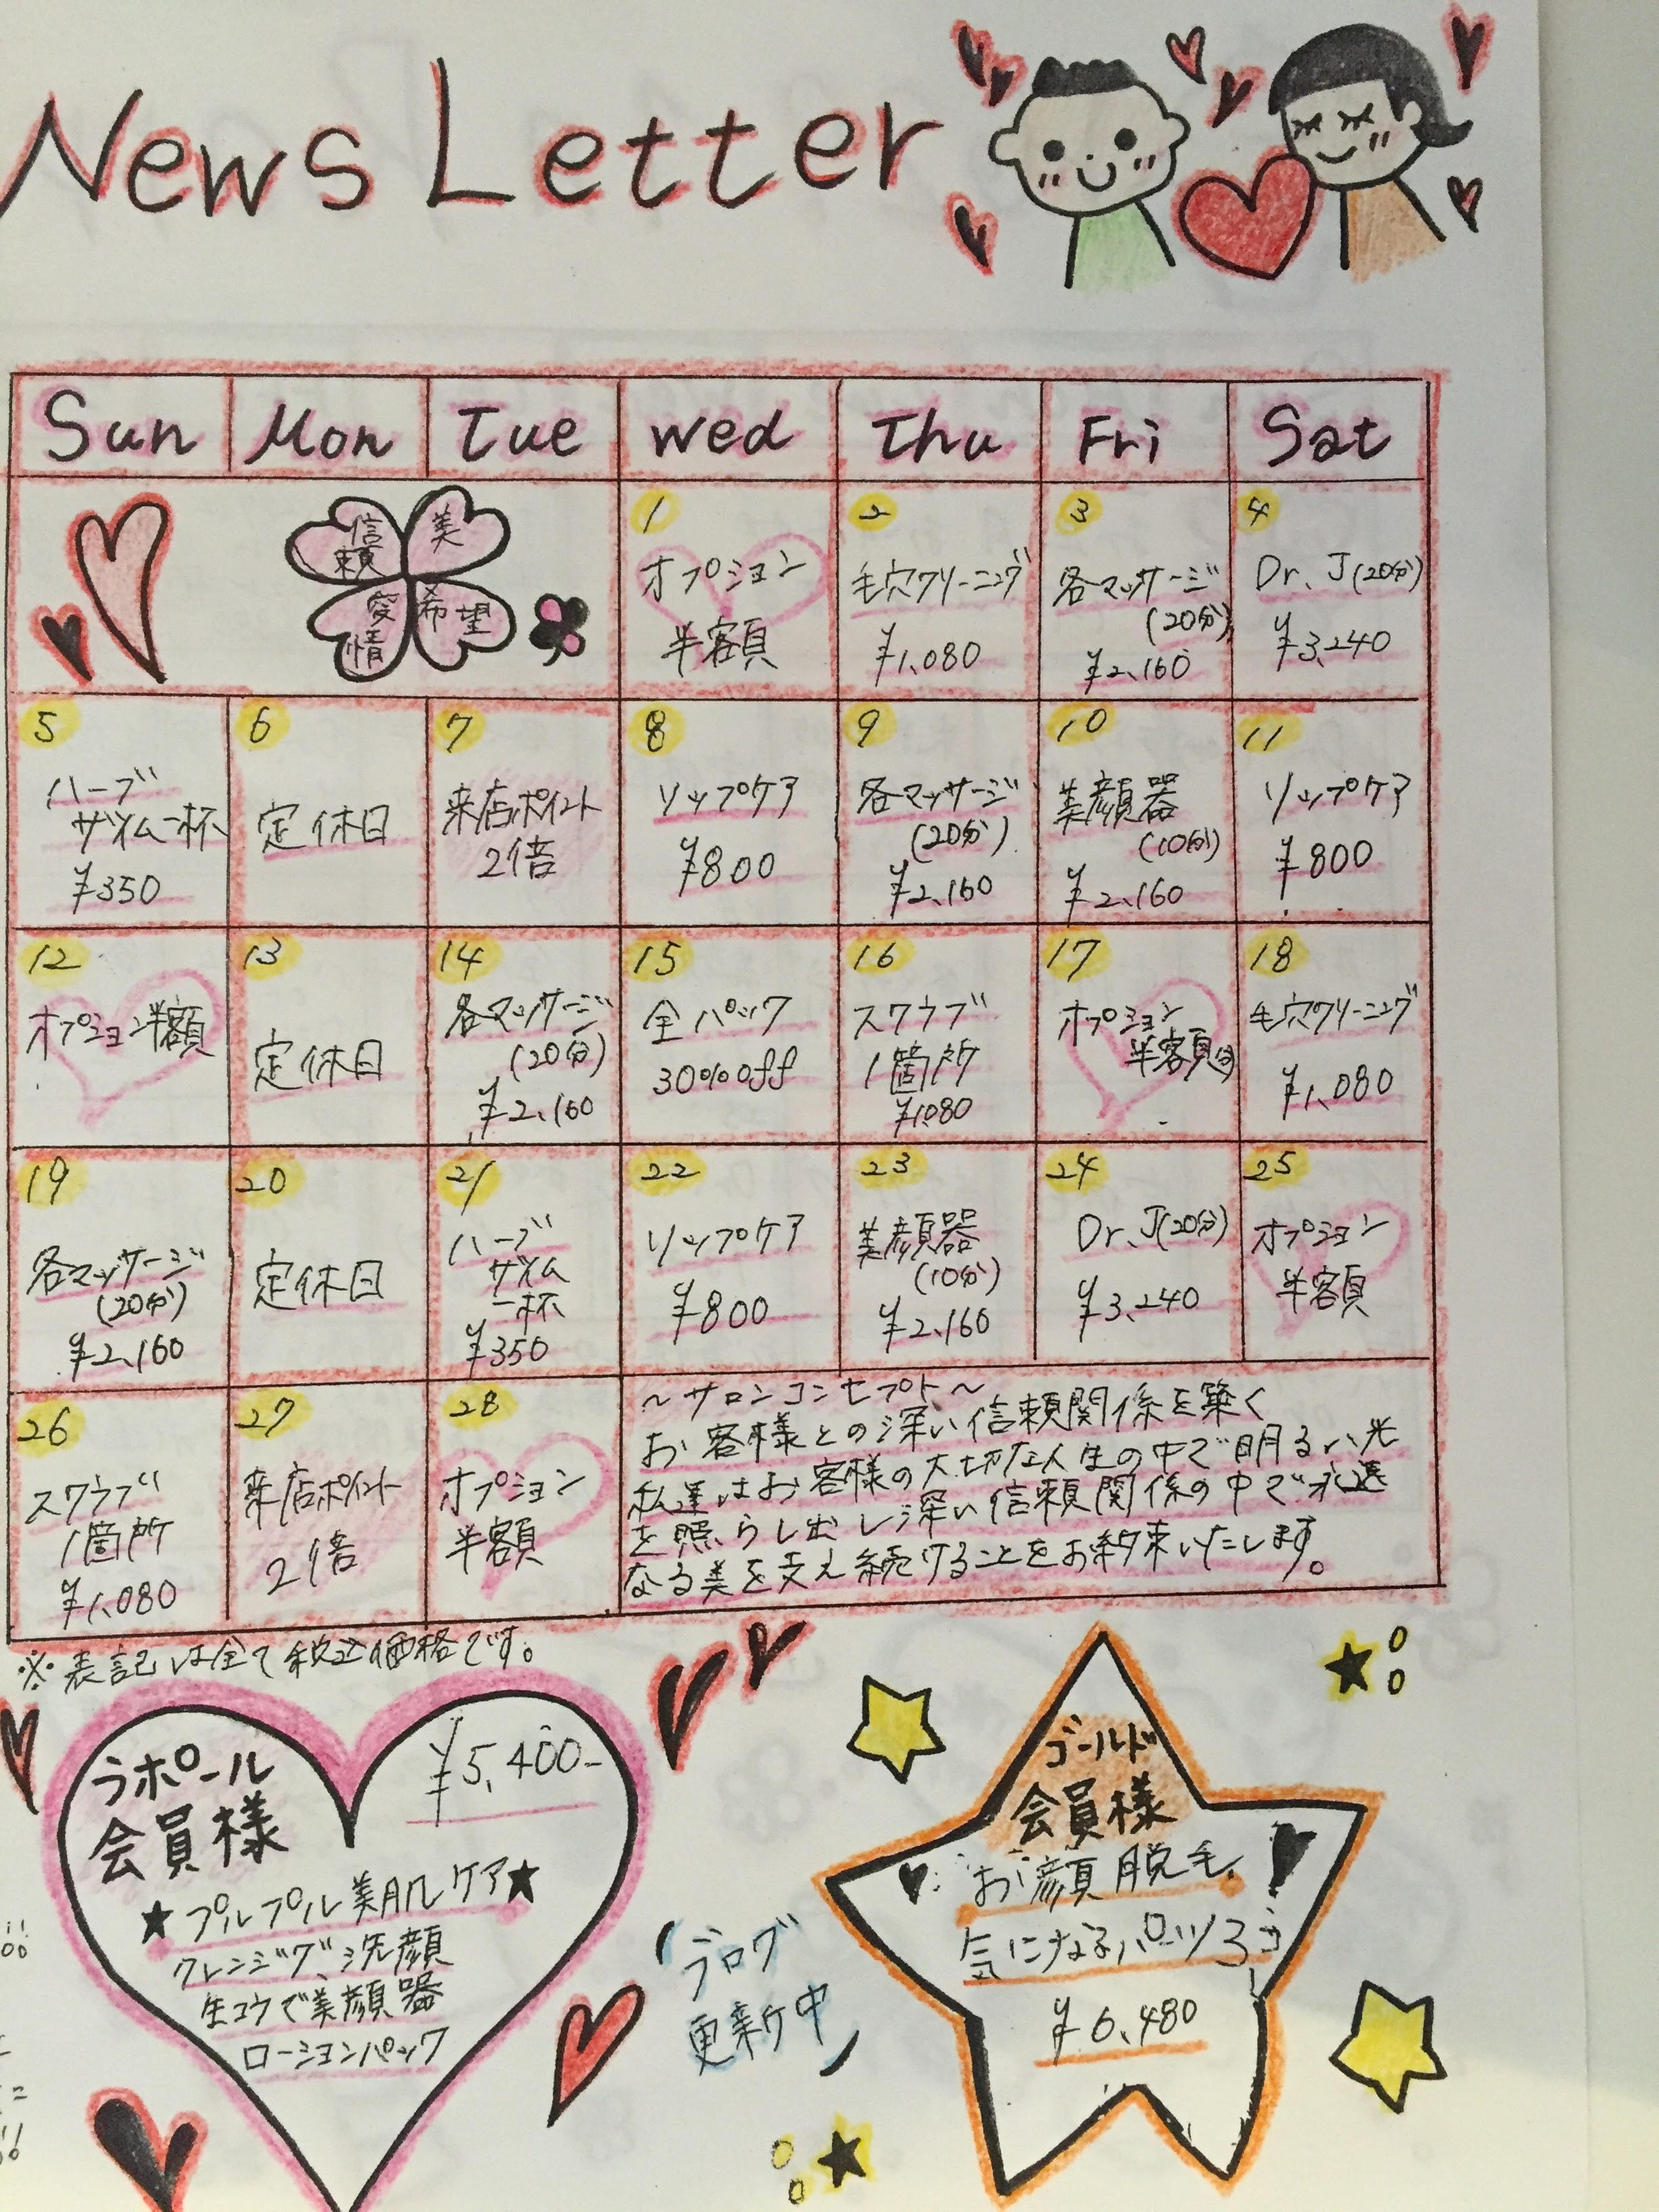 News Letter
Sun Mon Tue Wed Thu Fri Sat
信頼
美
愛情
希望
1
オプション
半額
2
毛穴クリーニング
¥1,080
3
各マッサージ
(20分)
¥2,160
4
Dr.J(20分)
¥3,240
5
ハーブ
ザイム一杯
¥350
6
定休日
7
来店ポイント
2倍
8
リップケア
¥800
9
各マッサージ
(20分)
¥2,160
10
美顔器
(10分)
¥2,160
11
リップケア
¥800
12
オプション半額
13
定休日
14
各マッサージ
(20分)
¥2,160
15
全パック
30%off
16
スクラブ
1箇所
¥1,080
17
オプション
半額
18
毛穴クリーニング
¥1,080
19
各マッサージ
(20分)
¥2,160
20
定休日
21
ハーブ
ザイム
一杯
¥350
22
リップケア
¥800
23
美顔器
(10分)
¥2,160
24
Dr.J(20分)
¥3,240
25
オプション
半額
26
スクラブ
1箇所
¥1,080
27
来店ポイント
2倍
28
オプション
半額
~サロンコンセプト~
お客様との深い信頼関係を築く
私達はお客様の大切な人生の中で明るい光
を照らし出し深い信頼関係の中で永遠
なる美を支え続けることをお約束いたします。
※表記は全て税込価格です。
ラポール
会員様
¥5,400-
★プルプル美肌ケア★
クレンジング、洗顔
生コウで美顔器
ローションパック
ブログ
更新中
ゴールド
会員様
お顔脱毛
気になるパーツ3つ
¥6,480